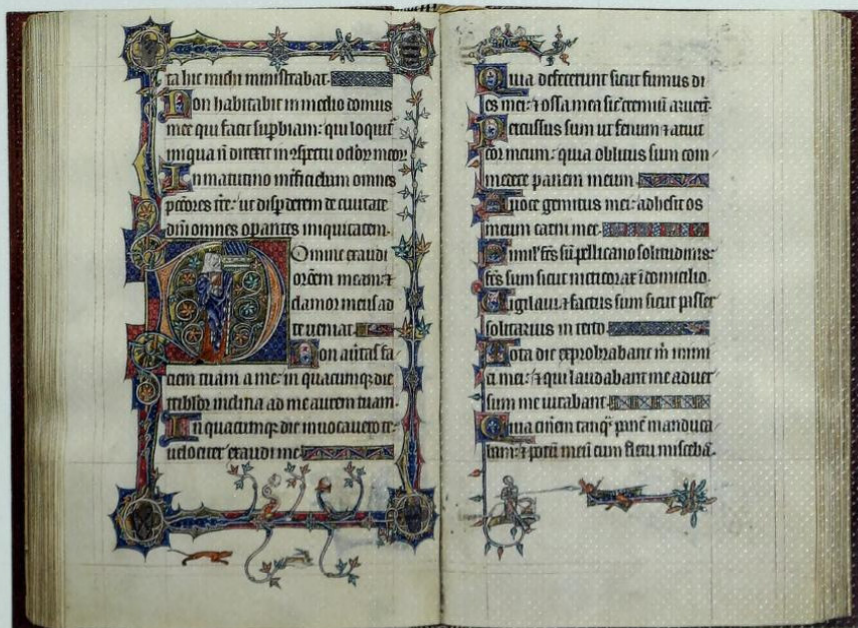 ta hic michi ministrabat.
Non habitabit in medio domus
mee qui facit supbiam: qui loquit
iniqua n direxit in 9spectu oclor meor
In matutino inficiebam omnes
pctores tre: ut disperderem de ciuitate
dni omnes opantes iniquitatem.
Domine exaudi
oroem meam: 7
clamor meus ad
te ueniat.
Non auertas fa
ciem tuam a me: in quacumq die
tribulor inclina ad me aurem tuam.
In quacumq die inuocauero te:
uelociter exaudi me.
Quia defecerunt sicut fumus di
es mei: 7 ossa mea sic cremiu aruert.
Percussus sum ut fenum 7 aruit
cor meum: quia oblitus sum com
medere panem meum.
A uoce gemitus mei: adhesit os
meum carni mee.
Similis fcs su pellicano solitudinis:
fcs sum sicut nicticorax i domicilio.
Vigilaui: 7 factus sum sicut passer
solitarius in tecto.
Tota die exprobrabant m inimi
ci mei: 7 qui laudabant me aduer
sum me iurabant.
Quia cinem tanq pane manduca
bam: 7 potu meu cum fletu misceba.